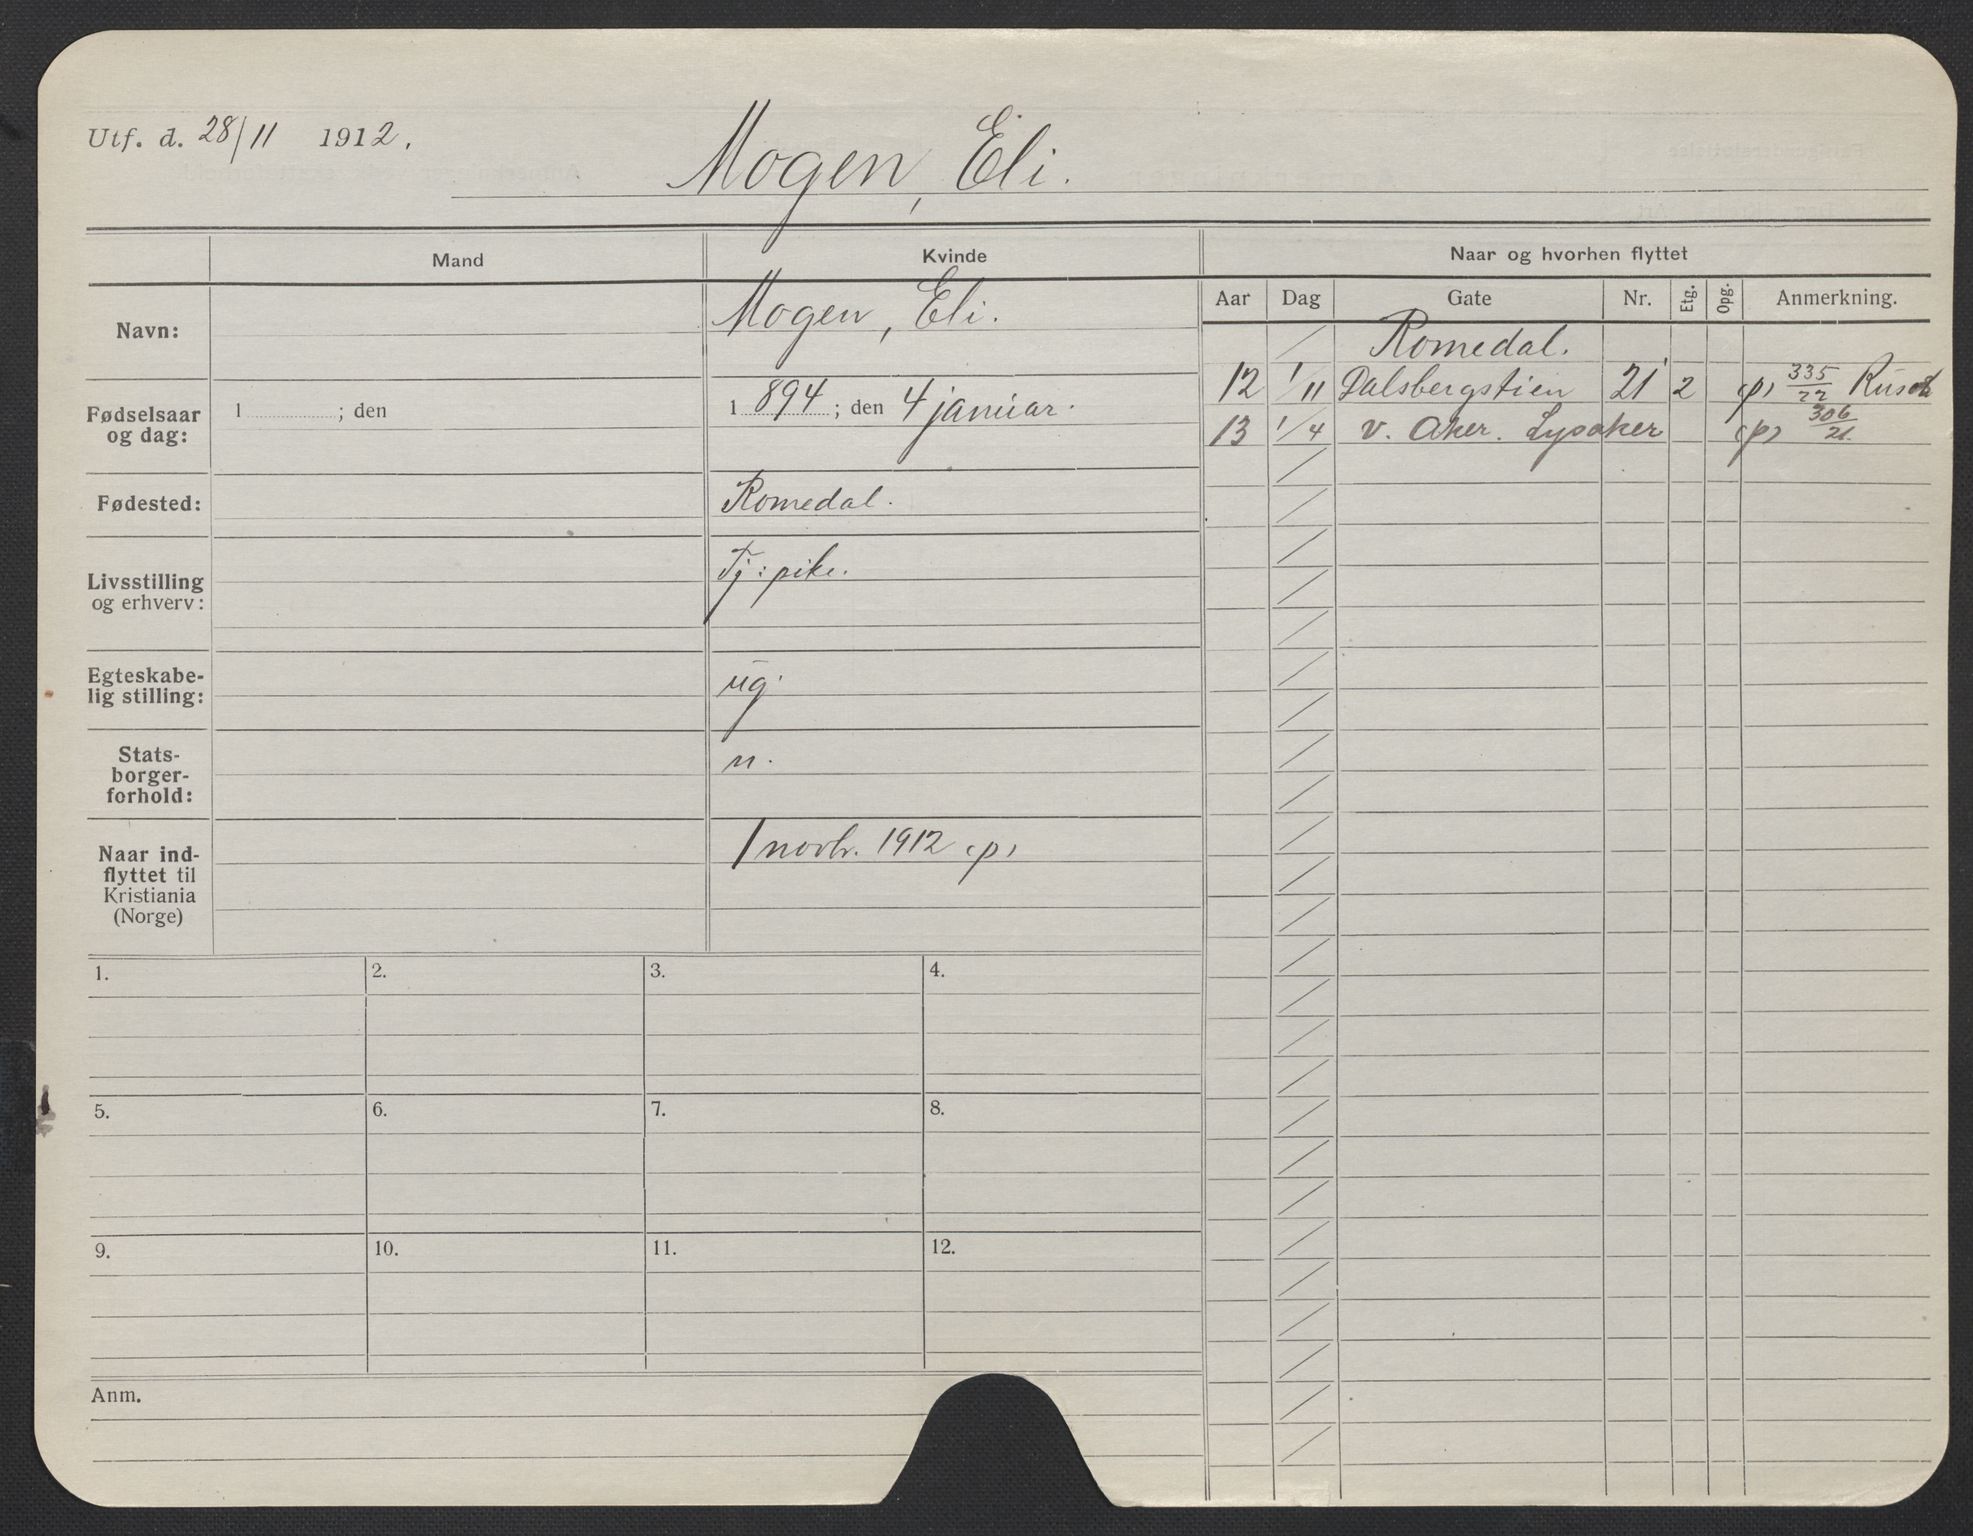 Utf. d. 28/11 1912.
Mogen, Eli.
Mand
Kvinde
Naar og hvorhen flyttet
Navn:
Mogen, Eli.
Fødselsaar og dag:
1 ; den
1894; den 4 januar.
Fødested:
Romedal.
Livsstilling og erhverv:
Tj: pike.
Egteskabe-
lig stilling:
ug.
Stats-
borger-
forhold:
n.
Naar ind-
flyttet til
Kristiania
(Norge)
1 novbr. 1912 (p)
Aar Dag Gate Nr. Etg. Opg. Anmerkning.
Romedal.
12 1/11 Dalsbergstien 21 2 (p) 335/22
13 1/4 v. Aker. Lysaker (p) 306/21.
1. 2. 3. 4.
5. 6. 7. 8.
9. 10. 11. 12.
Anm.